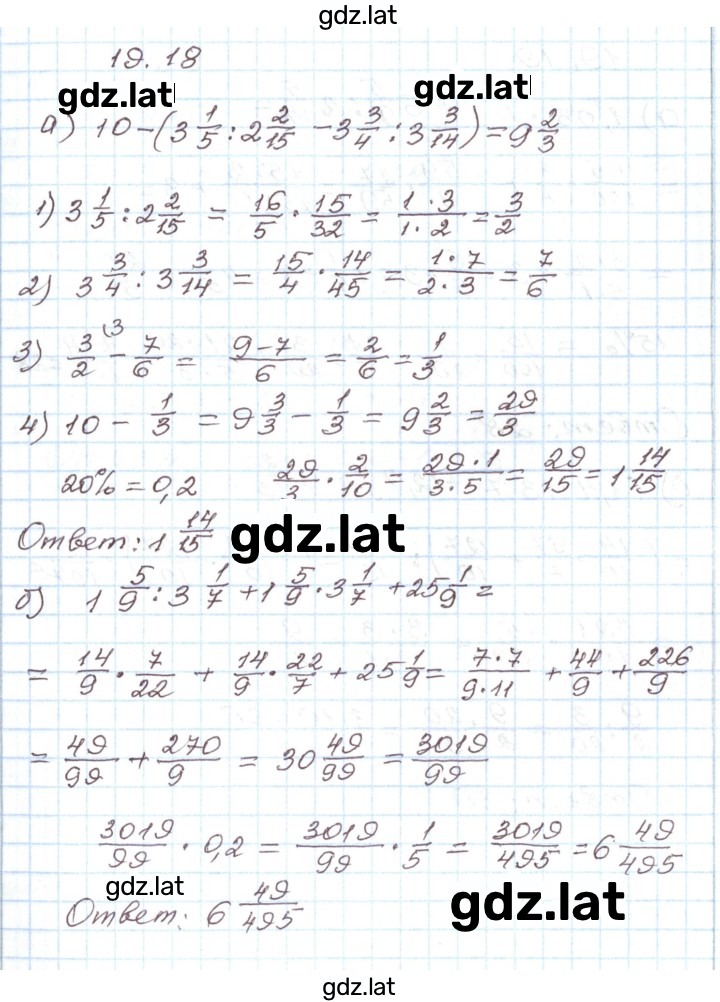 gdz.lat
19.18
gdz.lat gdz.lat
а) 10-(3 1/5 : 2 2/15 - 3 3/4 : 3 3/14) = 9 2/3
1) 3 1/5 : 2 2/15 = 16/5 · 15/32 = 1·3/1·2 = 3/2
2) 3 3/4 : 3 3/14 = 15/4 · 14/45 = 1·7/2·3 = 7/6
3) 3/2 (3 - 7/6 = 9-7/6 = 2/6 = 1/3
4) 10 - 1/3 = 9 3/3 - 1/3 = 9 2/3 = 29/3
20% = 0,2 29/3 · 2/10 = 29·1/3·5 = 29/15 = 1 14/15
Ответ: 1 14/15 gdz.lat
б) 1 5/9 : 3 1/7 + 1 5/9 · 3 1/7 + 25 1/9 =
= 14/9 · 7/22 + 14/9 · 22/7 + 25 1/9 = 7·7/9·11 + 44/9 + 226/9
= 49/99 + 270/9 = 30 49/99 = 3019/99
3019/99 · 0,2 = 3019/99 · 1/5 = 3019/495 = 6 49/495
gdz.lat gdz.lat
Ответ: 6 49/495
gdz.lat